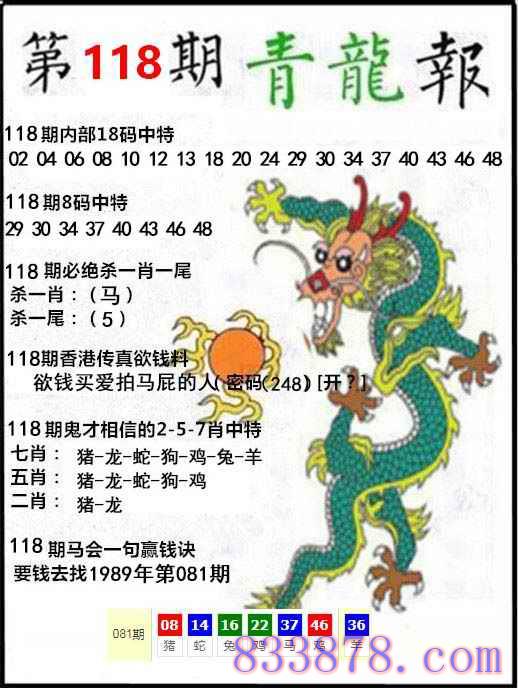 第118期青龍報
118期内部18码中特
02 04 06 08 10 12 13 18 20 24 29 30 34 37 40 43 46 48
118期8码中特
29 30 34 37 40 43 46 48
118期必绝杀一肖一尾
杀一肖：（马）
杀一尾：（5）
118期香港传真欲钱料
欲钱买爱拍马屁的人(密码(248)[开？]
118期鬼才相信的2-5-7肖中特
七肖： 猪-龙-蛇-狗-鸡-兔-羊
五肖： 猪-龙-蛇-狗-鸡
二肖： 猪-龙
118期马会一句赢钱诀
要钱去找1989年第081期
081期 08 14 16 22 37 46 36
猪 蛇 兔 鸡 马 鸡 羊
833878.com